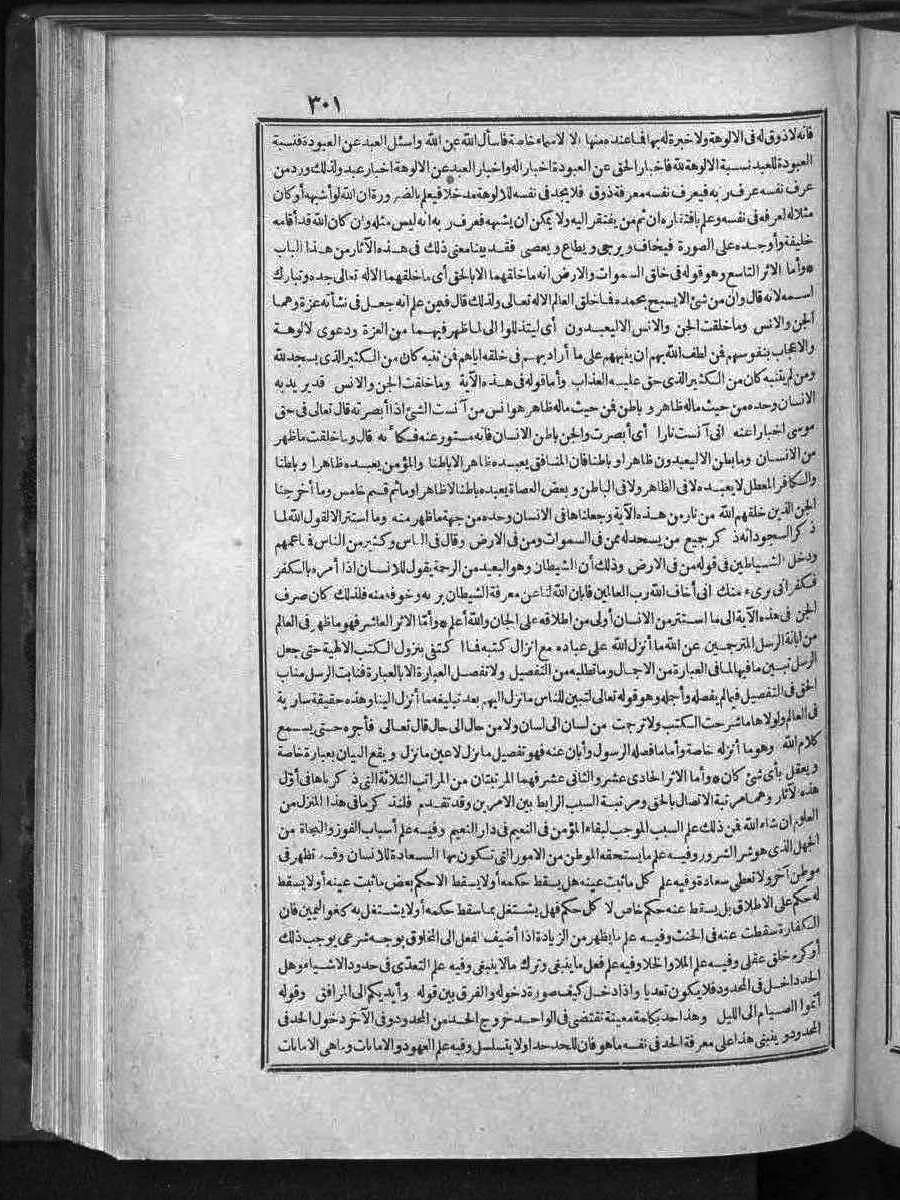 ٣٠١
فانه لا ذوق له فى الالوهة ولا خبرة له بها فما عنده منها الا الاسماء خاصة فاسأل الله عن الله واسئل العبد عن العبودة فنسبة
العبودة للعبد نسبة الالوهة لله فاخبار الحق عن العبودة اخبار اله واخبار العبد عن الالوهة اخبار عبد ولذلك ورد من
عرف نفسه عرف ربه فيعرف نفسه معرفة ذوق فلا يجد فى نفسه للالوهة مدخلا فيعلم بالضرورة ان الله لو أشبهه أو كان
مثلا له لعرفه فى نفسه وعلم بافتقاره ان ثم من يفتقر اليه ولا يمكن ان يشبهه فعرف ربه انه ليس مثله وان كان الله قد أقامه
خليفة وأوجده على الصورة فيخاف ويرجى ويطاع ويعصى فقد بينا معنى ذلك فى هذه الآثار من هذا الباب
*وأما الاثر التاسع وهو قوله فى خلق السموات والارض انه ما خلقهما الا بالحق أى ما خلقهما الا له تعالى جده وتبارك
اسمه لانه قال وان من شئ الا يسبح بحمده فما خلق العالم الا له تعالى ولذلك قال فمن علم انه جعل فى نشأته عزة وهما
الجن والانس وما خلقت الجن والانس الا ليعبدون أى ليتذللوا الى لما ظهر فيهما من العزة ودعوى الالوهة
والاعجاب بنفوسهم فمن لطف الله بهم ان ينبههم على ما أراد بهم فى خلقه اياهم فمن تنبه كان من الكثير الذى يسجد لله
ومن لم يتنبه كان من الكثير الذى حق عليه العذاب وأما قوله فى هذه الآية وما خلقت الجن والانس قد يريد به
الانسان وحده من حيث ما له ظاهر وباطن فمن حيث ما له ظاهر هو انس من آنست الشئ اذا أبصرته قال تعالى فى حق
موسى اخبارا عنه انى آنست نارا أى أبصرت والجن باطن الانسان فانه مستور عنه فكأنه قال وما خلقت ما ظهر
من الانسان وما بطن الا ليعبدون ظاهرا وباطنا فان المنافق يعبده ظاهرا لا باطنا والمؤمن يعبده ظاهرا وباطنا
والكافر المعطل لا يعبده لا فى الظاهر ولا فى الباطن وبعض العصاة يعبده باطنا لا ظاهرا وما ثم قسم خامس وما أخرجنا
الجن الذين خلقهم الله من نار من هذه الآية وجعلناها فى الانسان وحده من جهة ما ظهر منه وما استتر الا لقول الله لما
ذكر السجود انه ذكر جميع من يسجد له ممن فى السموات ومن فى الارض وقال فى الناس وكثير من الناس فما عمهم
ودخل الشياطين فى قوله من فى الارض وذلك أن الشيطان وهو البعيد من الرحمة يقول للانسان اذا أمره بالكفر
فكفر انى برىء منك انى أخاف الله رب العالمين فابان الله لنا عن معرفة الشيطان بربه وخوفه منه فلذلك كان صرف
الجن فى هذه الآية الى ما استتر من الانسان أولى من اطلاقه على الجان والله أعلم *وأما الاثر العاشر فهو ما ظهر فى العالم
من ابانة الرسل المترجمين عن الله ما أنزل الله على عباده مع انزال كتبه فما اكتفى بنزول الكتب الالهية حتى جعل
الرسل تبين ما فيها لما فى العبارة من الاجمال وما تطلبه من التفصيل ولا تفصل العبارة الا بالعبارة فنابت الرسل مناب
الحق فى التفصيل فيما لم يفصله وأجمله وهو قوله تعالى لتبين للناس ما نزل اليهم بعد تبليغه ما أنزل الينا وهذه حقيقة سارية
فى العالم ولولاها ما شرحت الكتب ولا ترجمت من لسان الى لسان ولا من حال الى حال قال تعالى فأجره حتى يسمع
كلام الله وهو ما أنزله خاصة وأما ما فصله الرسول وأبان عنه فهو تفصيل ما نزل لا عين ما نزل ويقع البيان بعبارة خاصة
ويعقل بأى شئ كان *وأما الاثر الحادى عشر والثانى عشر فهما المرتبتان من المراتب الثلاثة التى ذكرناها فى أول
هذه الآثار وهما مرتبة الاتصال بالحق ومرتبة السبب الرابط بين الامرين وقد تقدم فلنذكر ما فى هذا المنزل من
العلوم ان شاء الله فمن ذلك علم السبب الموجب لبقاء المؤمن فى النعيم فى دار النعيم وفيه علم أسباب الفوز والنجاة من
الجهل الذى هو شر الشرور وفيه علم ما يستحقه الموطن من الامور التى تكون بها السعادة للانسان وقد تظهر فى
موطن آخر ولا تعطى سعادة وفيه علم كل ما ثبت عينه هل يسقط حكمه أولا يسقط الا حكم بعض ما ثبت عينه أولا يسقط
له حكم على الاطلاق بل يسقط عنه حكم خاص لا كل حكم فهل يشتغل بما سقط حكمه أولا يشتغل به كلغو اليمين فان
الكفارة سقطت عنه فى الحنث وفيه علم ما يظهر من الزيادة اذا أضيف الفعل الى المخلوق بوجه شرعى يوجب ذلك
أو كرم خلق عقلى وفيه علم الملا والخلا وفيه علم فعل ما ينبغى وترك ما لا ينبغى وفيه علم التعدى فى حدود الاشياء وهل
الحد داخل فى المحدود فلا يكون تعديا واذا دخل كيف صورة دخوله والفرق بين قوله وأيديكم الى المرافق وقوله
أتموا الصيام الى الليل وهذا حد بكلمة معينة تقتضى فى الواحد خروج الحد من المحدود وفى الآخر دخول الحد فى
المحدود وينبنى هذا على معرفة الحد فى نفسه ما هو فان للحد حدا ولا يتسلسل وفيه علم العهود والامانات وما هى الامانات